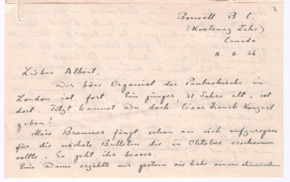 Boswell B C.
(Kootenay Lake)
Canada
8. 6. 56.
Lieber Albert,
Der böse Organist der Pauluskirche in
London ist fort. Ein junger, 31 Jahre alt, ist
dort. Jetzt kannst Du doch César Franck Konzert
geben!
Miss Brammer fängt schon an sich aufzuregen
für die nächste Bulletin die in Oktober erscheinen
sollte. Es geht ihr besser.
Eine Dame erzählte mir gestern sie habe einen